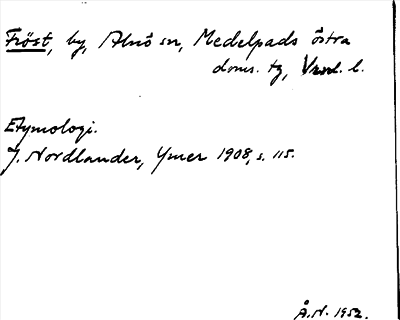 Fröst, by, Alnö sn, Medelpads östra
doms. tg, Vnrl. l.
Etymologi.
J. Nordlander, Ymer 1908, s. 115.
Å.N. 1952.